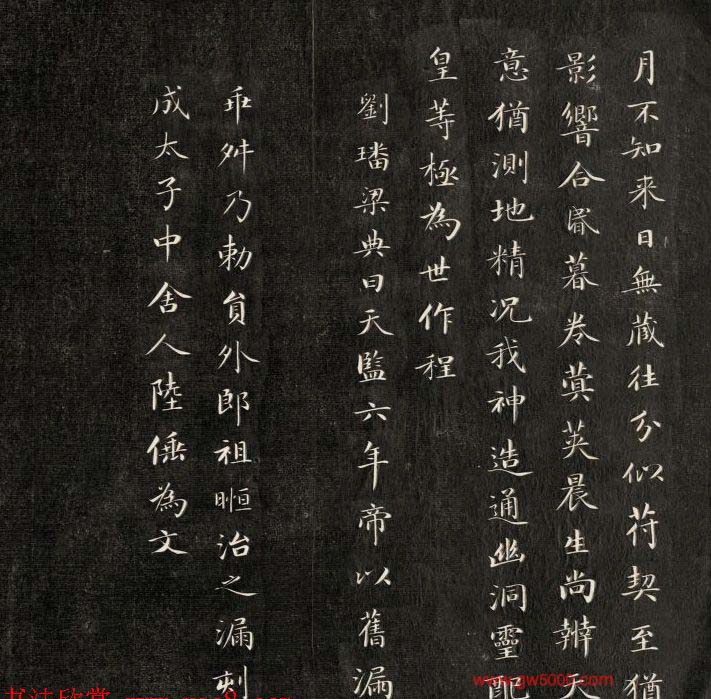 月不知来日無藏往分似苻契至猶
影響合昬暮卷蓂莢晨生尚辨天
意猶測地精况我神造通幽洞靈配
皇等極為世作程
劉璠梁典曰天監六年帝以舊漏
乖舛乃勅員外郎祖暅治之漏刻
成太子中舍人陸倕為文
www.gw5000.com
书法欣赏